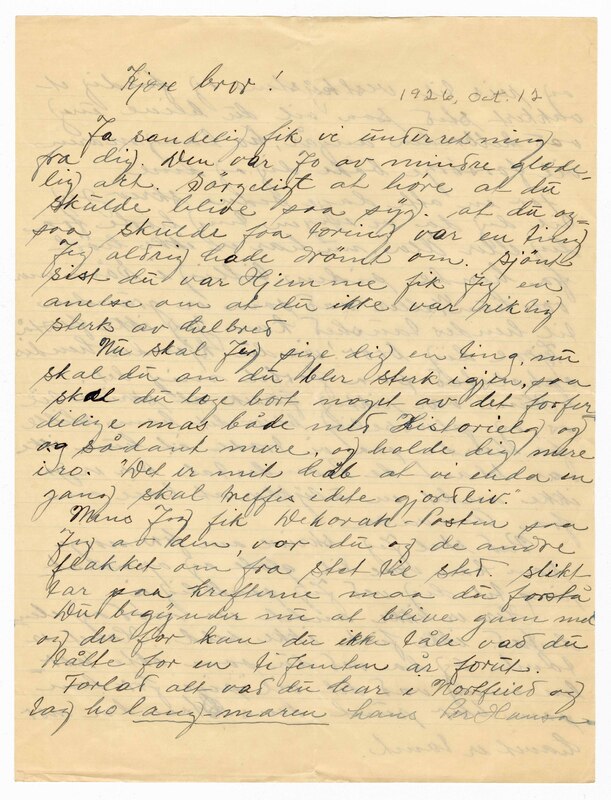 Kjøre bror!
1926, Oct. 12
Ja sandelig fik vi underretning
fra dig. Den var Jo av mindre glæde-
lig art. Sørgeligt at høre at du
skulde blive saa syg. at du og-
saa skulde faa toring var en ting
Jeg aldrig hade drömt om. Sjönt
sist du var Hjemme fik Jeg en
anelse om at du ikke var riktig
sterk av helbred
Nu skal Jeg sige dig en ting, nu
skal du om du bler sterk igjen, saa
skal du læge bort noget av det forfer
delige mas både med Historielag og
og sådant mere, og holde dig mere
i ro. "Det er mit håb at vi enda en
gang skal treffes i dete gjordliv."
Mens Jeg fik Dekorah-Posten saa
Jeg av den, vor du og de andre
flakket om, fra sted til sted. slikt
tar paa krefterne maa du forstå
Du begynder nu at blive gam mel
og der for kan du ikke tåle vad du
tålte for en ti femten år forut.
Forlad alt vad du har i Northfield og
tag ho lang-maren hans Per Hansa